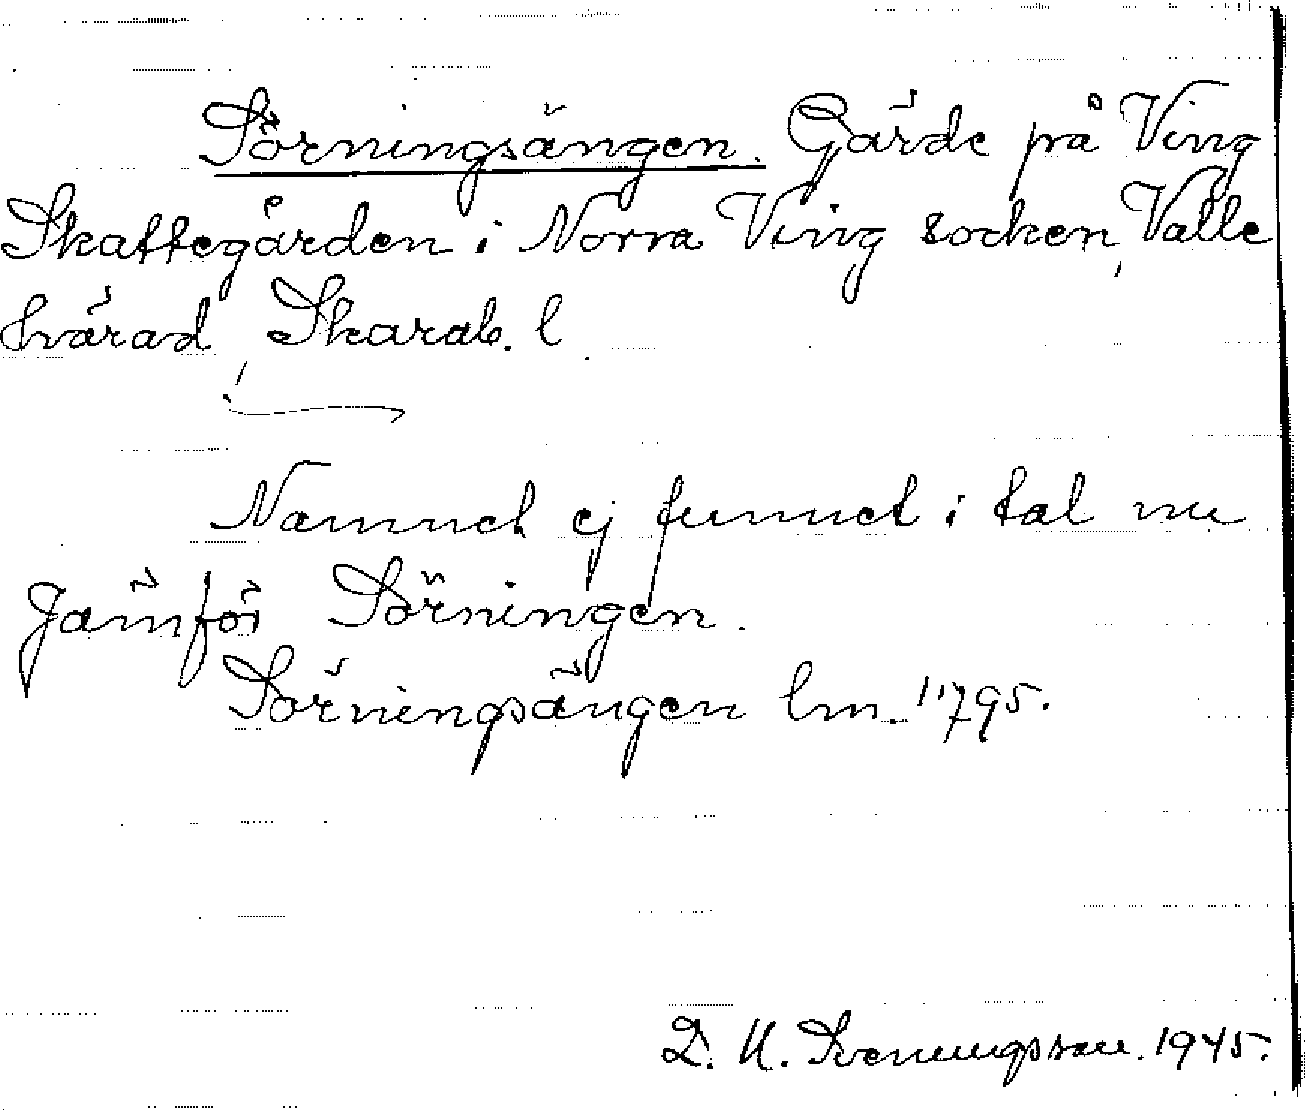 Sörningsängen. Gärde på Ving
Skattegården i Norra Ving socken, Valle
härad, Skarab. l
Namnet ej funnet i tal nu
Jämför Sörningen.
Sörningsängen lm. 1795.
D. U. Sveningsson. 1945.